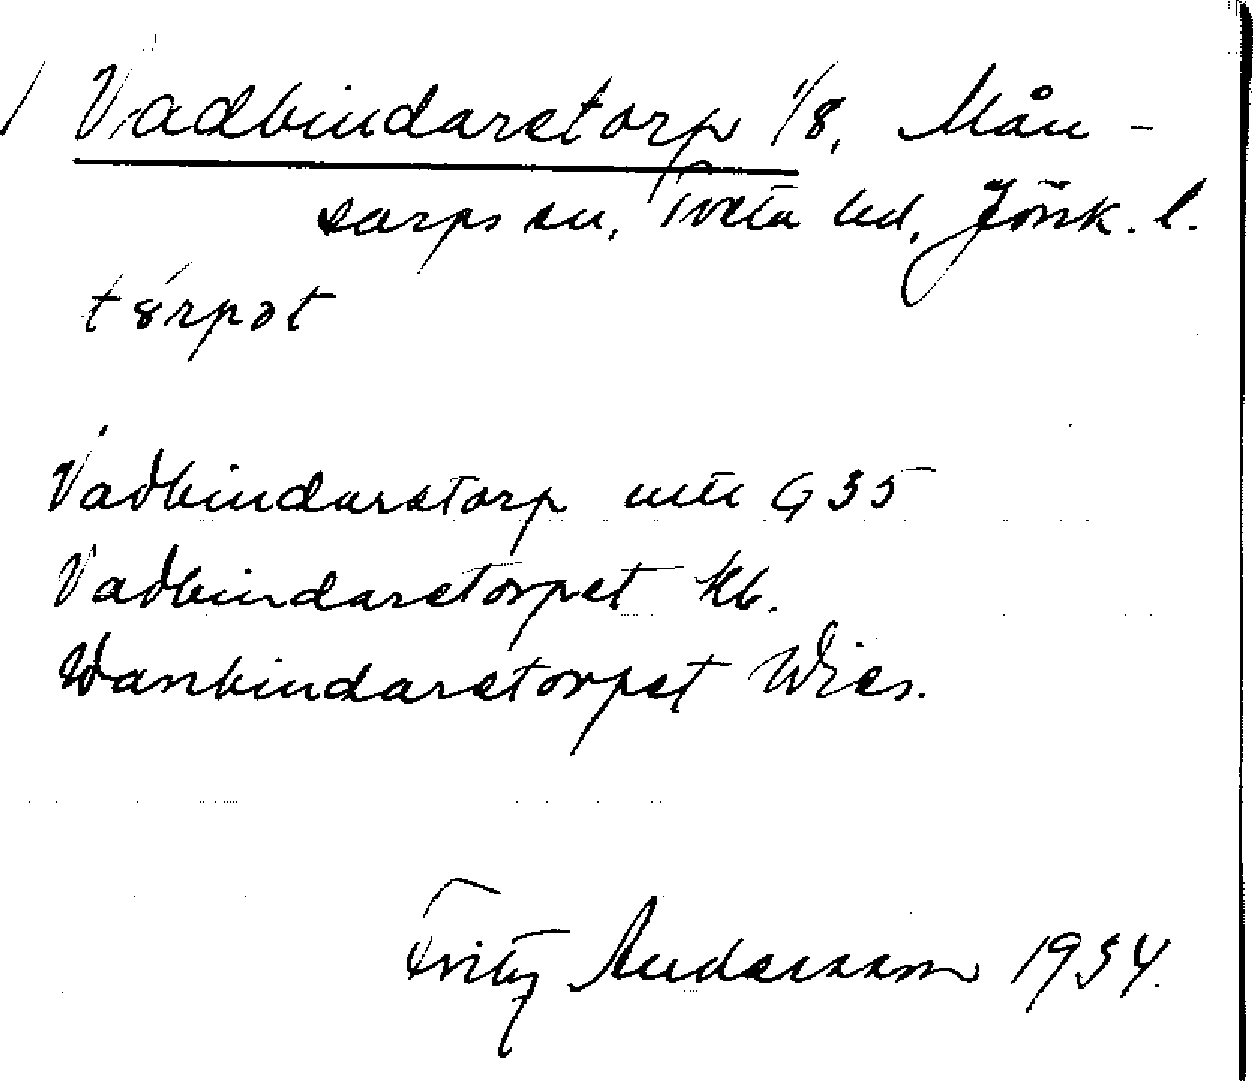 / Vadbindarstorp 1/8, Mån-
sarps sn, Tveta hd, Jönk. l.
Vadbindarstorp utu G35
Vadbindarstorpet Kb.
Wanbindarstorpet Wies.
Fritz Andersson 1934.